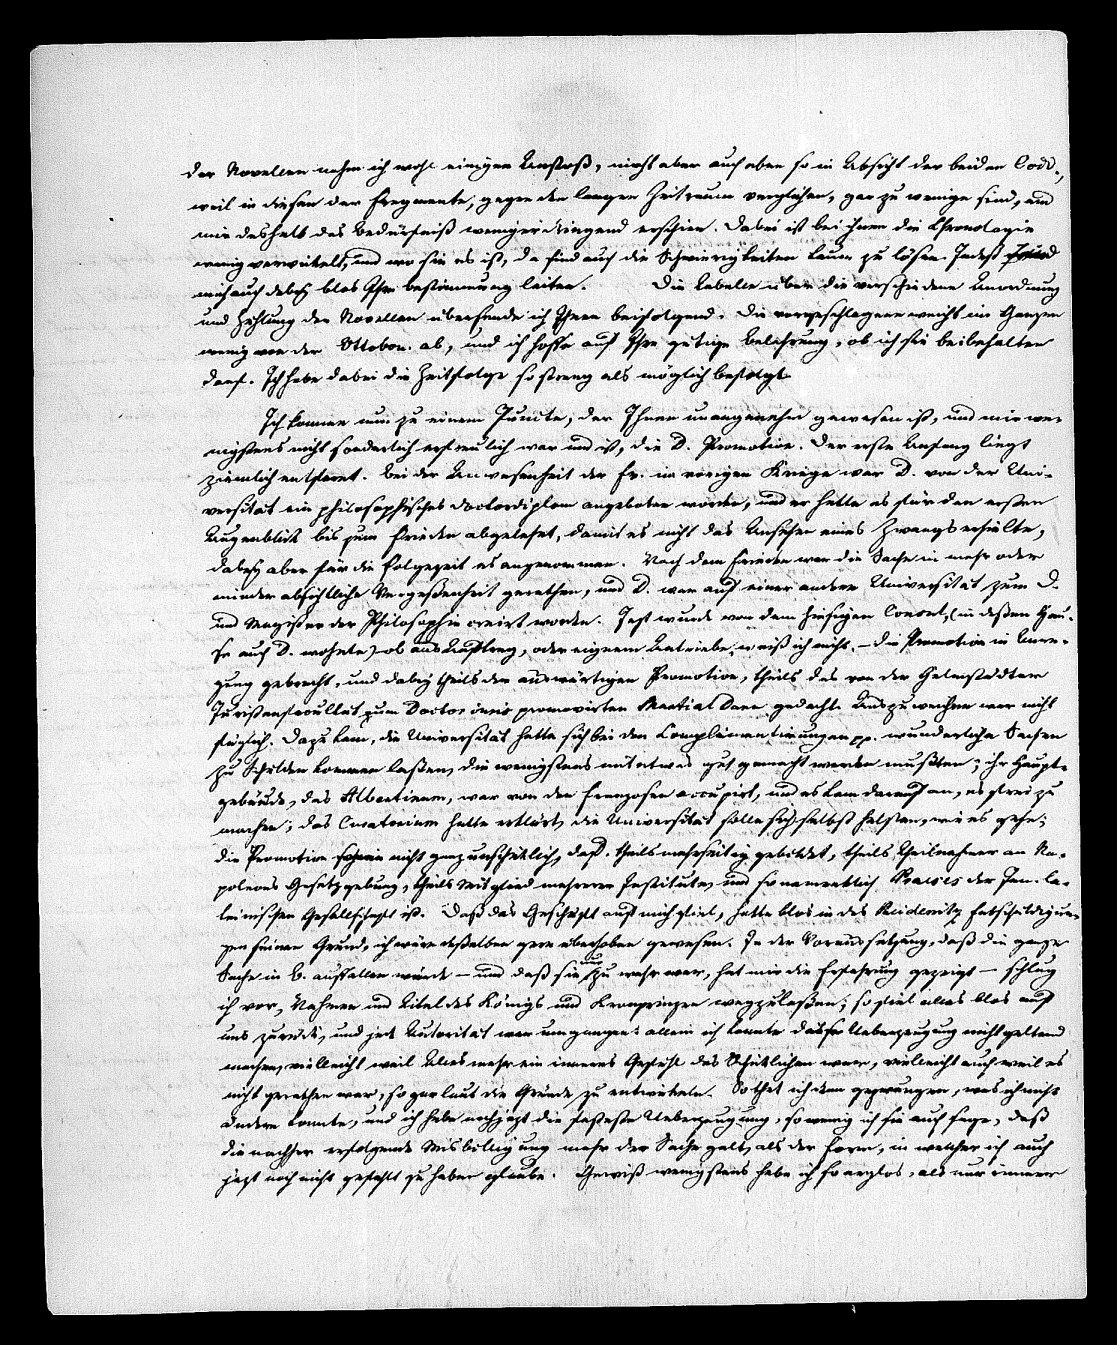 der Novellen nahm ich wohl einigen Anstoß, nicht aber auch eben so in Absicht der beiden Codd.,
weil in diesen der Fragmente, gegen den langen Zeitraum verglichen, gar zu wenige sind, und
mir deshalb das Bedürfniß weniger dringend erschien. Dabei ist bei ihnen die Chronologie
wenig verwickelt, und wo sie es ist, da sind auch die Schwierigkeiten kaum zu lösen. Indeß
mich auch dabei blos Ihre Bestimmung leiten. Die Tabelle über die verschiedene Anordnung
und Zählung der Novellen übersende ich Ihnen beifolgend. Die vorgeschlagene weicht im Ganzen
wenig von der Ottobon. ab, und ich hoffe auf Ihre gütige Belehrung, ob ich sie beibehalten
darf. Ich habe dabei die Zeitfolge so streng als möglich befolgt.
Ich komme nun zu einem Puncte, der Ihnen unangenehm gewesen ist, und mir we-
nigstens nicht sonderlich erfreulich war und ist, die D. Promotion. Der erste Anfang liegt
ziemlich entfernt. Bei der Anwesenheit der Fr. im vorigen Kriege war D. von der Uni-
versität ein philosophisches Doctordiplom angeboten worden, und er hatte es für den ersten
Augenblick bis zum Frieden abgelehnt, damit es nicht das Ansehen eines Zwangs erhielte,
dabei aber für die Folgezeit es angenommen. Nach dem Frieden war die Sache in mehr oder
minder absichtliche Vergeßenheit gerathen, und D. war auf einer andern Universität zum D.
und Magister der Philosophie creirt worden. Jetzt wurde von dem hiesigen Consul, (in deßen Hau-
se auch D. wohnte) ob aus Auftrag, oder eigenem Antriebe, weiß ich nicht, – die Promotion in Anre-
gung gebracht, und dabei theils der auswärtigen Promotion, theils des von der Helmstädter
Juristenfacultät zum Doctor iuris promovirten Martial Daru gedacht. Auszuweichen war nicht
füglich. Dazu kam, die Universität hatte sich bei den Complimentirungen pp. wunderliche Sachen
zu Schulden kommen laßen, die wenigstens mit etwas gut gemacht werden mußten; ihr Haupt-
gebäude, das Albertinum, war von den Franzosen occupirt, und es kam darauf an, es frei zu
machen; das Curatorium hatte erklärt, die Universität solle sich selbst helfen, wie es gehe;
die Promotion schien nicht ganz unschicklich, da D. theils mehrseitig gebildet, theils Theilnehmer an Na-
poleons Gesetzgebung, theils Mitglied mehrerer Institute, und so namentlich Praeses der Jen. la-
teinischen Gesellschaft ist. Daß das Geschäft auf mich fiel, hatte blos in des Reidenitz Entschuldigun-
gen seinen Grund, ich wäre deßelben gern überhoben gewesen. In der Voraussetzung, daß die ganze
Sache in B. auffallen würde – und daß sie nur zu wahr war, hat mir die Erfahrung gezeigt – schlug
ich vor, Nahmen und Titel des Königs und Kronprinzen wegzulaßen; so fiel alles blos auf
uns zurück, und jede Autorität war umgangen: allein ich konnte diese Ueberzeugung nicht geltend
machen, vielleicht weil Alles mehr ein inneres Gefühl des Schicklichen war, vielleicht auch weil es
nicht gerathen war, so gar laut die Gründe zu entwickeln. So that ich denn gezwungen, was ich nicht
ändern konnte, und ich habe noch jetzt die festeste Ueberzeugung, so wenig ich sie auch sage, daß
die nachher erfolgende Misbilligung mehr der Sache galt, als der Form, in welcher ich auch
jetzt noch nicht gefehlt zu haben glaube. Gewiß wenigstens habe ich so arglos, als nur immer